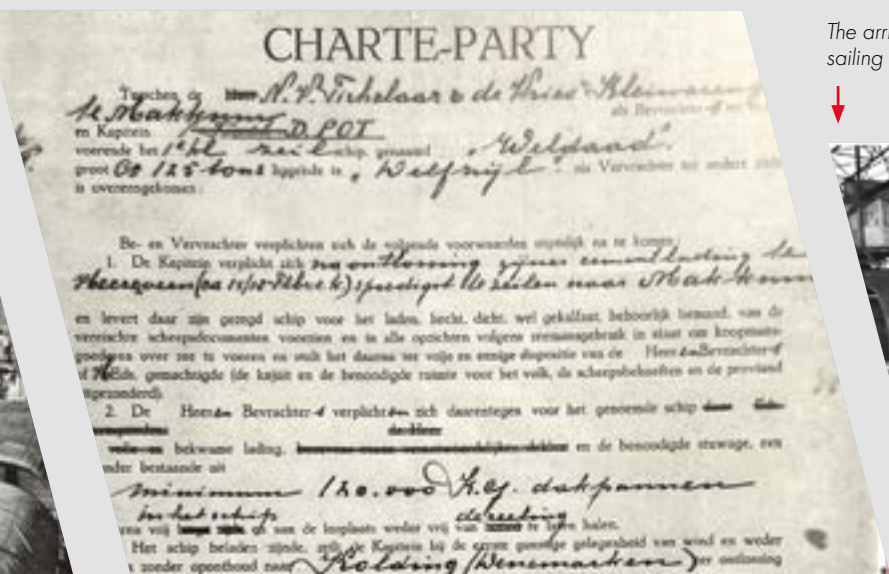 CHARTE-PARTY
Tusschen de N.V. Tichelaar & de Vries' Kleiwaren
te Makkum als Bevrachter
en Kapitein D. POT
voerende het zeilschip, genaamd „Weldaad".
groot 125 tons liggende te „Delfzijl". als Vervrachter ter andere zijde
is overeengekomen:
Be- en Vervrachter verplichten zich de volgende voorwaarden stiptelijk na te komen.
1. De Kapitein verplicht zich na ontlossing zijner te
Heerenveen spoedigst te zeilen naar Makkum
en levert daar zijn gezegd schip voor het laden, hecht, dicht, wel gekalfaat, behoorlijk bemand, van de
vereischte scheepsdocumenten voorzien en in alle opzichten volgens zeemansgebruik in staat om koopmans-
goederen over zee te voeren en stelt het daarna ter vrije en eenige dispositie van de Heeren Bevrachter
of HEds. gemachtigde (de kajuit en de benoodigde ruimte voor het volk, de scheepsbehoeften en de proviand
uitgezonderd).
2. De Heeren Bevrachter-s verplichten zich daarentegen voor het genoemde schip
de Heer
bekwame lading, en de benoodigde stuwage, een
ander bestaande uit
minimum 120.000 K.G. dakpannen
in het schip de reeling
vrij en aan de losplaats weder vrij van te laten halen.
Het schip beladen zijnde, zeilt de Kapitein bij de eerste gunstige gelegenheid van wind en weder
zonder oponthoud naar Kolding (Denemarken) ter ontlossing
The arr
sailing